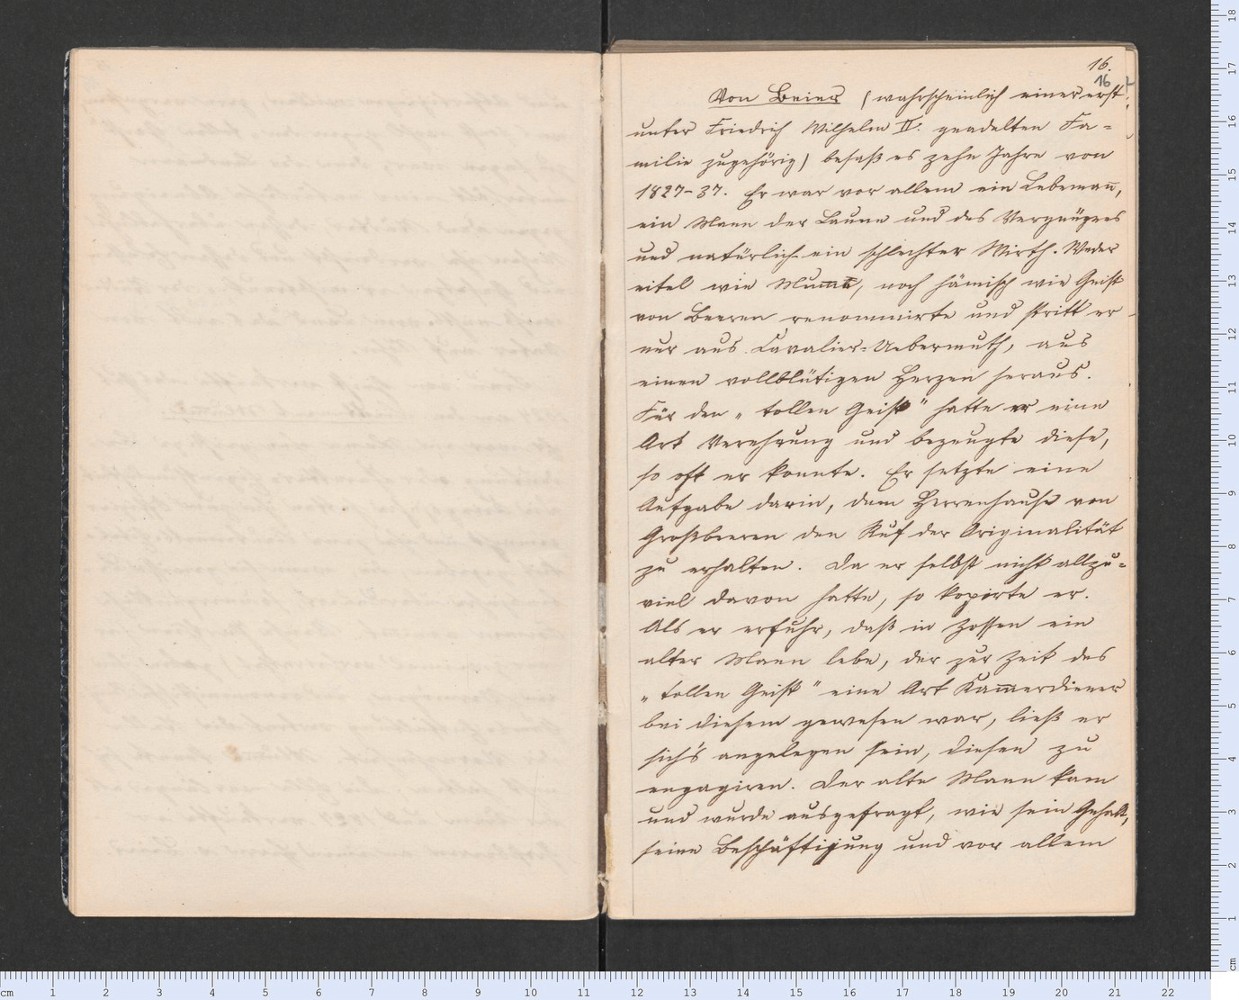 16.
16
Von Beier (wahrscheinlich einer erst
unter Friedrich Wilhelm II. geadelten Fa-
milie zugehörig) besaß es zehn Jahre von
1827-37. Er war vor allem ein Lebemañ,
ein Mann der Laune und des Vergnügens
und natürlich ein schlechter Wirth. Weder
eitel wie Mumme, noch hämisch wie Geist
von Beeren, renommirte und stritt er
nur aus Cavalier-Uebermuth, aus
einem vollblütigen Herzen heraus.
Für den „tollen Geist" hatte er eine
Art Verehrung und bezeugte diese,
so oft er konnte. Er setzte eine
Aufgabe darin, dem Herrenhause von
Großbeeren den Ruf der Originalität
zu erhalten. Da er selbst nicht allzu-
viel davon hatte, so kopirte er.
Als er erfuhr, daß in Zossen ein
alter Mann lebe, der zur Zeit des
„tollen Geist" eine Art Kam̄erdiener
bei diesem gewesen war, ließ er
sich's angelegen sein, diesen zu
engagiren. Der alte Mann kam
und wurde ausgefragt, wie sein Gehalt,
seine Beschäftigung und vor allem